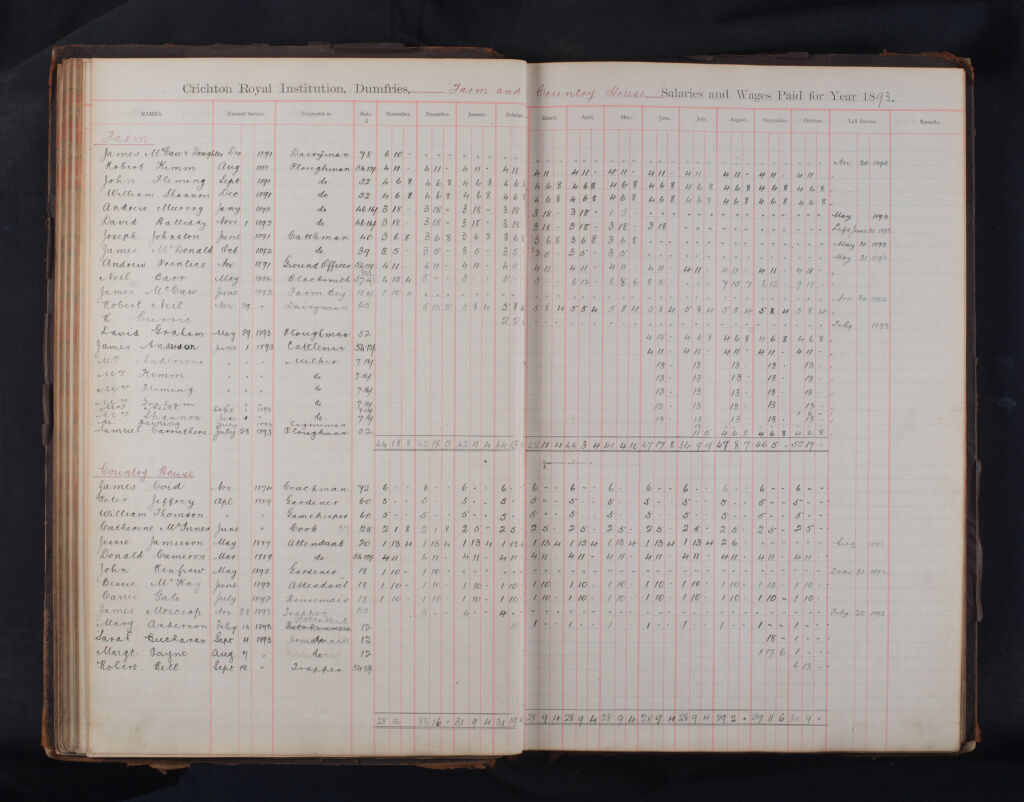 Crichton Royal Institution, Dumfries, Farm and Country House Salaries and Wages Paid for Year 1893.
NAMES. Entered Service. Employed to Rate. £ November. December. January. March. April. May. June. July. August. September. October. Left Service. Remarks.
Farm
James McCaw & Daughter Dec 1891 Dairyman 78 6 10 - Nov 30 1892
Robert Kimm Aug Ploughman 4 11 - 4 11 - 4 11 - 4 11 4 11 - 4 11 - 4 11 - 4 11 - 4 11 - 4 11 - 4 11 - 4 11 -
John Fleming Sept 1891 do 52 4 6 8 4 6 8 4 6 8 4 6 8 4 6 8 4 6 8 4 6 8 4 6 8 4 6 8 4 6 8 4 6 8 4 6 8
William Shannon Dec 1891 do 52 4 6 8 4 6 8 4 6 8 4 6 8 4 6 8 4 6 8 4 6 8 4 6 8 4 6 8 4 6 8 4 6 8 4 6 8
Andrew Murray Jany do. 3 18 - 3 18 - 3 18 - 3 18 3 18 - 3 18 - May 1893
David Halliday Novr 1 1892 do. 3 18 - 3 18 - 3 18 - 3 18 3 18 - 3 18 - 3 18 - 3 18 Left June 30 1893
Joseph Johnston June 1891 Cattleman 40 3 6 8 3 6 8 3 6 8 3 6 8 3 6 8 3 6 8 3 6 8 May 31 1893
James McDonald Oct 1892 do 39 3 5 - 3 5 - 3 5 - 3 5 3 5 - 3 5 - 3 5 May 31 1893
Andrew Prentice Nov. 1891 Ground Officer 4 11 - 4 11 - 4 11 - 4 11 4 11 - 4 11 - 4 11 - 4 11 - 4 11 4 11 - 4 11 - 4 11 -
Neil Barr May Blacksmith 4 15 4 5 - 5 - 5 5 - 6 12 - 6 8 6 8 5 - 7 15 7 6 12 - 9 18 -
James McCaw June 1892 Farm Boy Nov 30 1892
Robert Neil Nov 29 " Dairyman 65 5 10 5 5 8 4 5 8 4 5 8 4 5 8 4 5 8 4 5 8 4 5 8 4 5 8 4 5 8 4 5 8 4
R Currie Feby 1893
David Graham May 29 1893 Ploughman 52 4 15 - 4 6 8 4 6 8 4 6 8 4 6 8
James Anderson June 1 1893 Cattleman 4 11 - 4 11 - 4 11 - 4 11 - 4 11 -
Mrs Anderson " " " Milker 13 - 13 13 - 13 - 13
Mrs Kimm " " " do 13 - 13 13 - 13 - 13
Mrs Fleming " " " do 13 - 13 13 - 13 - 13
Mrs Graham " " " do 13 - 13 13 - 13 - 13
Mrs Neill Sept 1893
Mrs Shannon June do 13 - 13 13 - 13 - 13
Samuel Carruthers July 28 1893 Ploughman 52 11 5 4 6 8 4 6 8 4 6 8
44 18 8 42 18 5 42 11 4 44 13 42 11 4 44 3 4 41 4 10 47 17 8 47 8 7 46 5 - 50 17 -
Country House
James Coid Nov. 1874 Coachman 72 6 - 6 - 6 - 6 6 - 6 - 6 - 6 - 6 6 - 6 - 6 -
Peter Jeffrey Apl 1889 Gardener 60 5 - 5 - 5 - 5 5 - 5 - 5 - 5 - 5 5 - 5 - 5 -
William Thomson " " Gamekeeper 60 5 - 5 - 5 - 5 5 - 5 - 5 - 5 - 5 5 - 5 - 5 -
Catherine McInnes June " Cook 25 2 1 8 2 1 8 2 5 2 5 2 5 - 2 5 - 2 5 - 2 5 - 2 5 2 5 - 2 5 - 2 5 -
Jessie Jamieson May 1887 Attendant 20 1 13 4 1 13 4 1 13 4 1 13 4 1 13 4 1 13 4 1 13 4 1 13 4 1 13 4 2 6 Aug 1893
Donald Cameron Mar 1889 do. 4 11 - 4 11 - 4 11 - 4 11 4 11 - 4 11 - 4 11 - 4 11 - 4 11 4 11 - 4 11 - 4 11 -
John Renfrew May 1892 Gardener 18 1 10 - 1 10 Decr 31 1892
Bessie McKay June 1892 Attendant 18 1 10 - 1 10 - 1 10 - 1 10 1 10 - 1 10 - 1 10 - 1 10 - 1 10 1 10 - 1 10 - 1 10 -
Carrie Gate July 1892 Housemaid 18 1 10 - 1 10 - 1 10 - 1 10 1 10 - 1 10 - 1 10 - 1 10 - 1 10 1 10 - 1 10 - 1 10 -
James Moscrop Nov 28 1892 Trapper 52 5 - 4 - 4 Feby 25 1893
Attendant
Mary Anderson Feby 14 1893 12 1 - 1 - 1 - 1 - 1 1 - 1 - 1 -
Sarah Buchanan Sept 4 1893 do 12 18 - 1 -
Margt. Payne Aug 7 " do 12 1 7 6 1 -
Robert Bell Sept 12 " Trapper 6 13 -
28 16 - 33 16 - 31 9 4 31 19 28 9 4 28 9 4 28 9 4 28 9 4 28 9 4 29 2 - 29 11 6 35 9 -